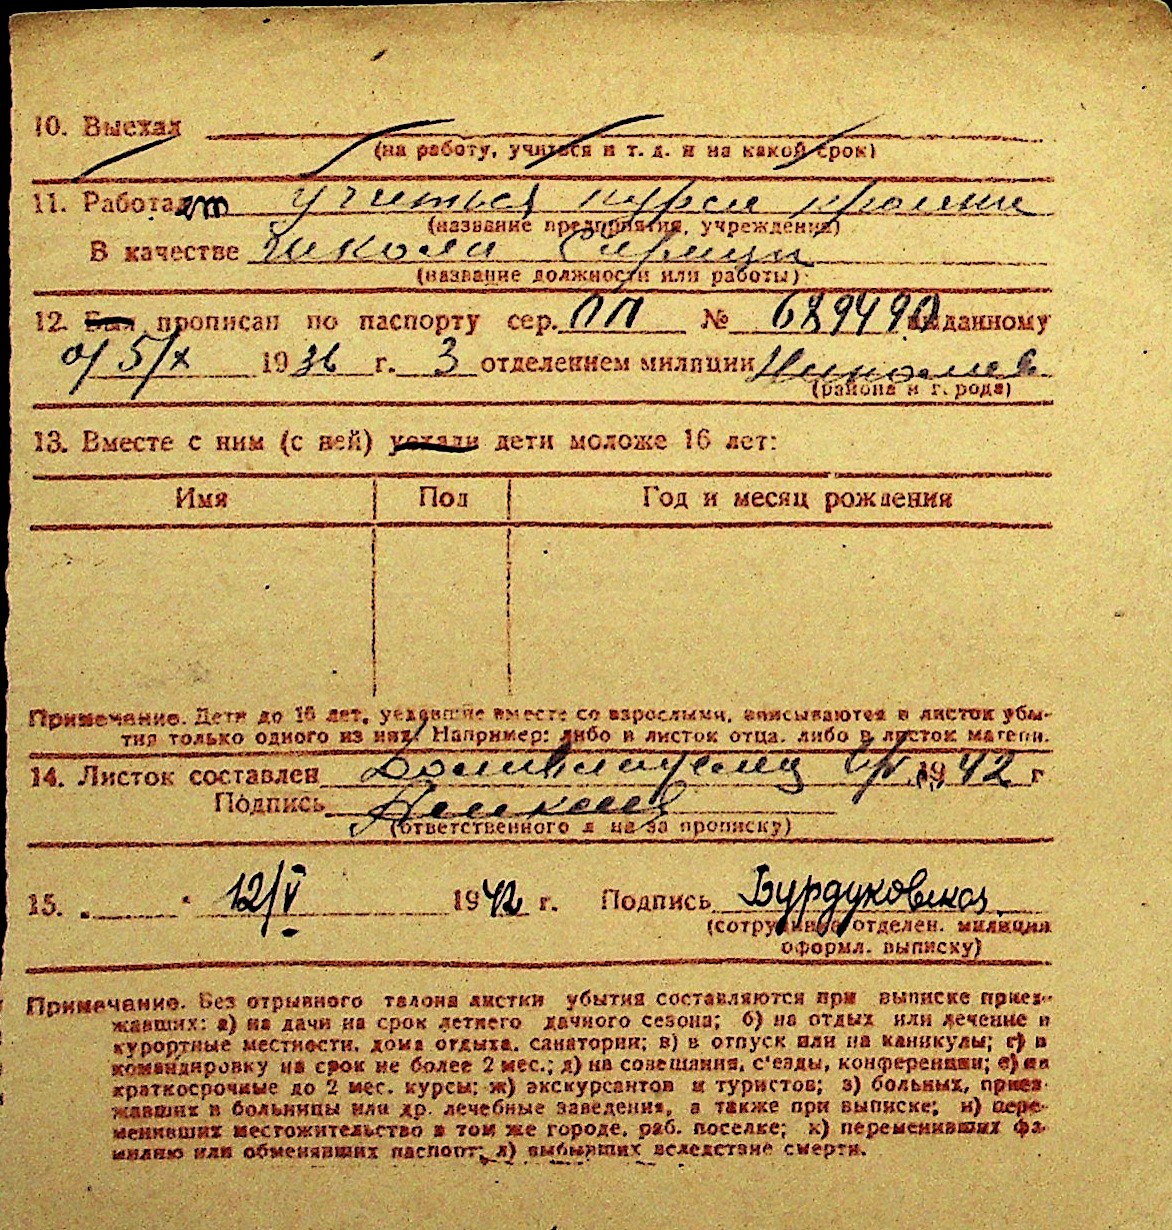 10. Выехал
(на работу, учиться и т. д. и на какой срок)
11. Работает учиться курси кройки
(название предприятия, учреждения)
В качестве школа
(название должности или работы)
12. Был прописан по паспорту сер. ПП № 689490 выданному
от 5/X 1936 г. 3 отделением милиции
(района и города)
13. Вместе с ним (с ней) уехали дети моложе 16 лет:
Имя Пол Год и месяц рождения
Примечание. Дети до 16 лет, уехавшие вместе со взрослыми, вписываются в листок убы-
тия только одного из них. Например: либо в листок отца, либо в листок матери.
14. Листок составлен Домовладелец 1942 г
Подпись
(ответственного л на за прописку)
15. 12/V 1942 г. Подпись Бурдуковская
(сотрудника отделен. милиции
оформл. выписку)
Примечание. Без отрывного талона листки убытия составляются при выписке приез-
жавших: а) на дачи на срок летнего дачного сезона; б) на отдых или лечение в
курортные местности, дома отдыха, санатории; в) в отпуск или на каникулы; г) в
командировку на срок не более 2 мес.; д) на совещания, с'езды, конференции; е) на
краткосрочные до 2 мес. курсы; ж) экскурсантов и туристов; з) больных, приез-
жавших в больницы или др. лечебные заведения, а также при выписке; и) пере-
менивших местожительство в том же городе, раб. поселке; к) переменивших фа-
милию или обменявших паспорт; л) выбывших вследствие смерти.